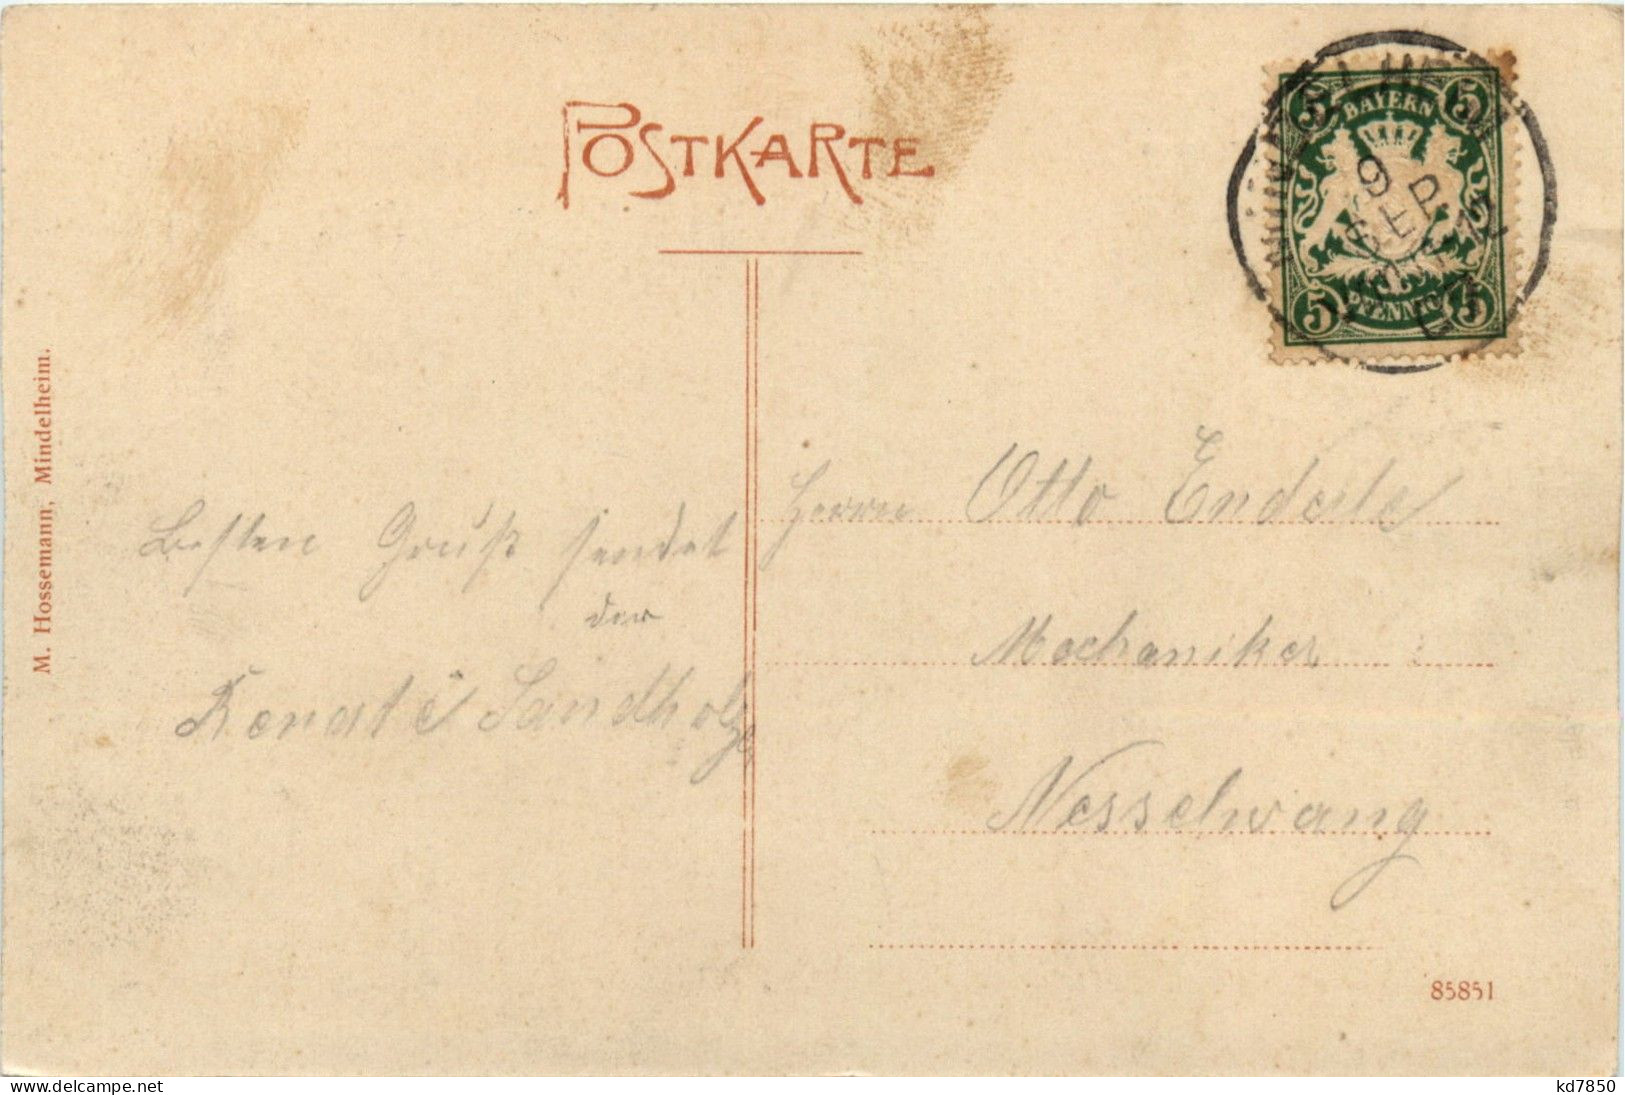 POSTKARTE
BAYERN
5 5
9
SEP.
5 PFENNIG 5
M. Hossemann, Mindelheim.
Besten Gruß sendet
der
Renate Sandholz
Herrn Otto Enderle
Mechaniker
Nesselwang
85851
delcampe.net
kd7850